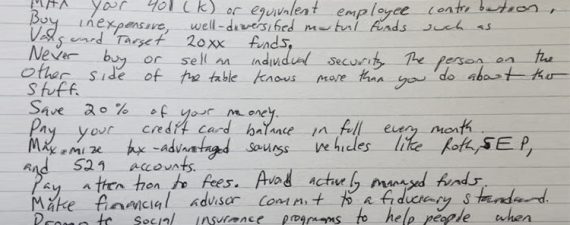 MAX your 401(k) or equivalent employee contribution.
Buy inexpensive, well-diversified mutual funds such as
Vanguard Target 20xx funds.
Never buy or sell an individual security. The person on the
other side of the table knows more than you do about this
stuff.
Save 20% of your money.
Pay your credit card balance in full every month.
Maximize tax-advantaged savings vehicles like Roth, SEP,
and 529 accounts.
Pay attention to fees. Avoid actively managed funds.
Make financial advisor commit to a fiduciary standard.
Promote social insurance programs to help people when